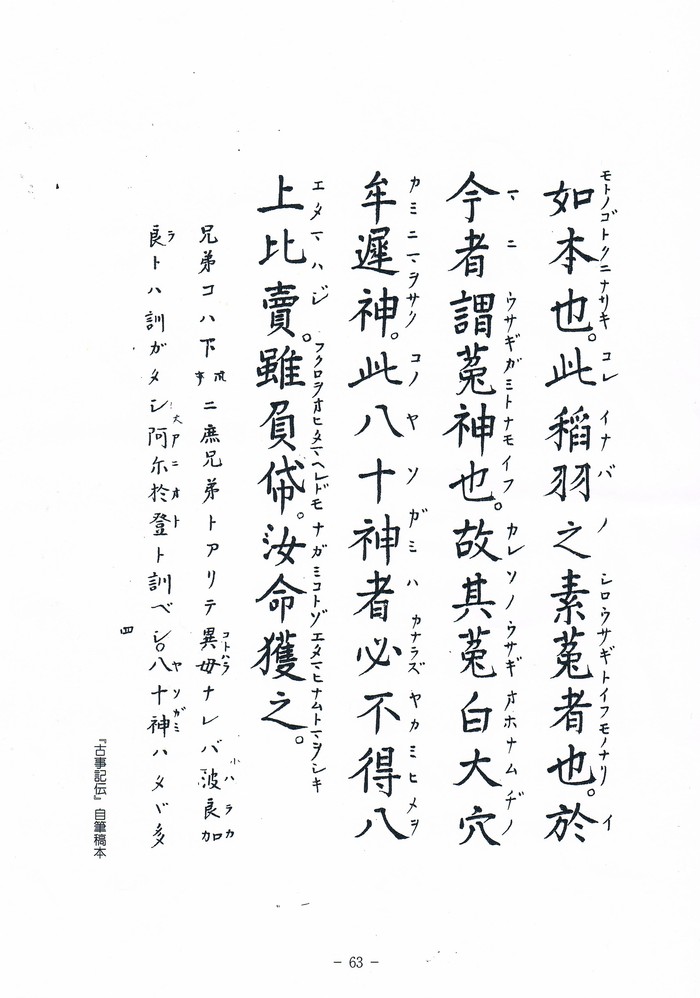 モトノゴトクニナリキ コレ イナバ ノ シロウサギトイフモノナリ イ
如本也。此稻羽之素菟者也。於
マニ ウサギガミトナモイフ カレ ソノウサギ オホナムヂノ
今者謂菟神也。故其菟白大穴
カミニマヲサク コノ ヤソガミハ カナラズ ヤカミヒメヲ
牟遲神。此八十神者必不得八
エタマハジ フクロヲオヒタマヘレドモ ナガミコトゾエタマヒナムトマヲシキ
上比賣。雖負帒。汝命獲之。
コトハラ ハラカ
兄弟コハ下ニ庶兄弟トアリテ異母ナレバ波良加
ラ アニオト ヤソガミ
良トハ訓ガタシ阿尓於登ト訓ベシ。八十神ハタヾ多
四
『古事記伝』自筆稿本
- 63 -